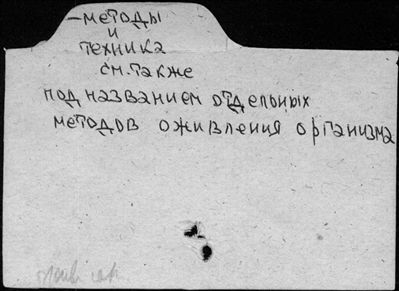 —методы
и
техника
см.также
под названием отдельных
методов оживления организма